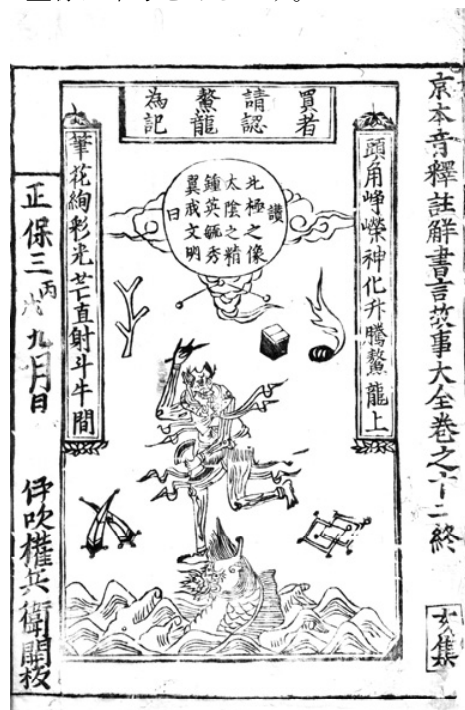 京本音釋註解書言故事大全卷之十二終
亥集
買者
請認
鰲龍
為記
頭角崢嶸神化升騰鰲龍上
讚
北極之像
太陰之精
鍾英毓秀
翼我文明
曰
筆花絢彩光芒直射斗牛間
正保三丙戌九月日
伊吹權兵衛開板